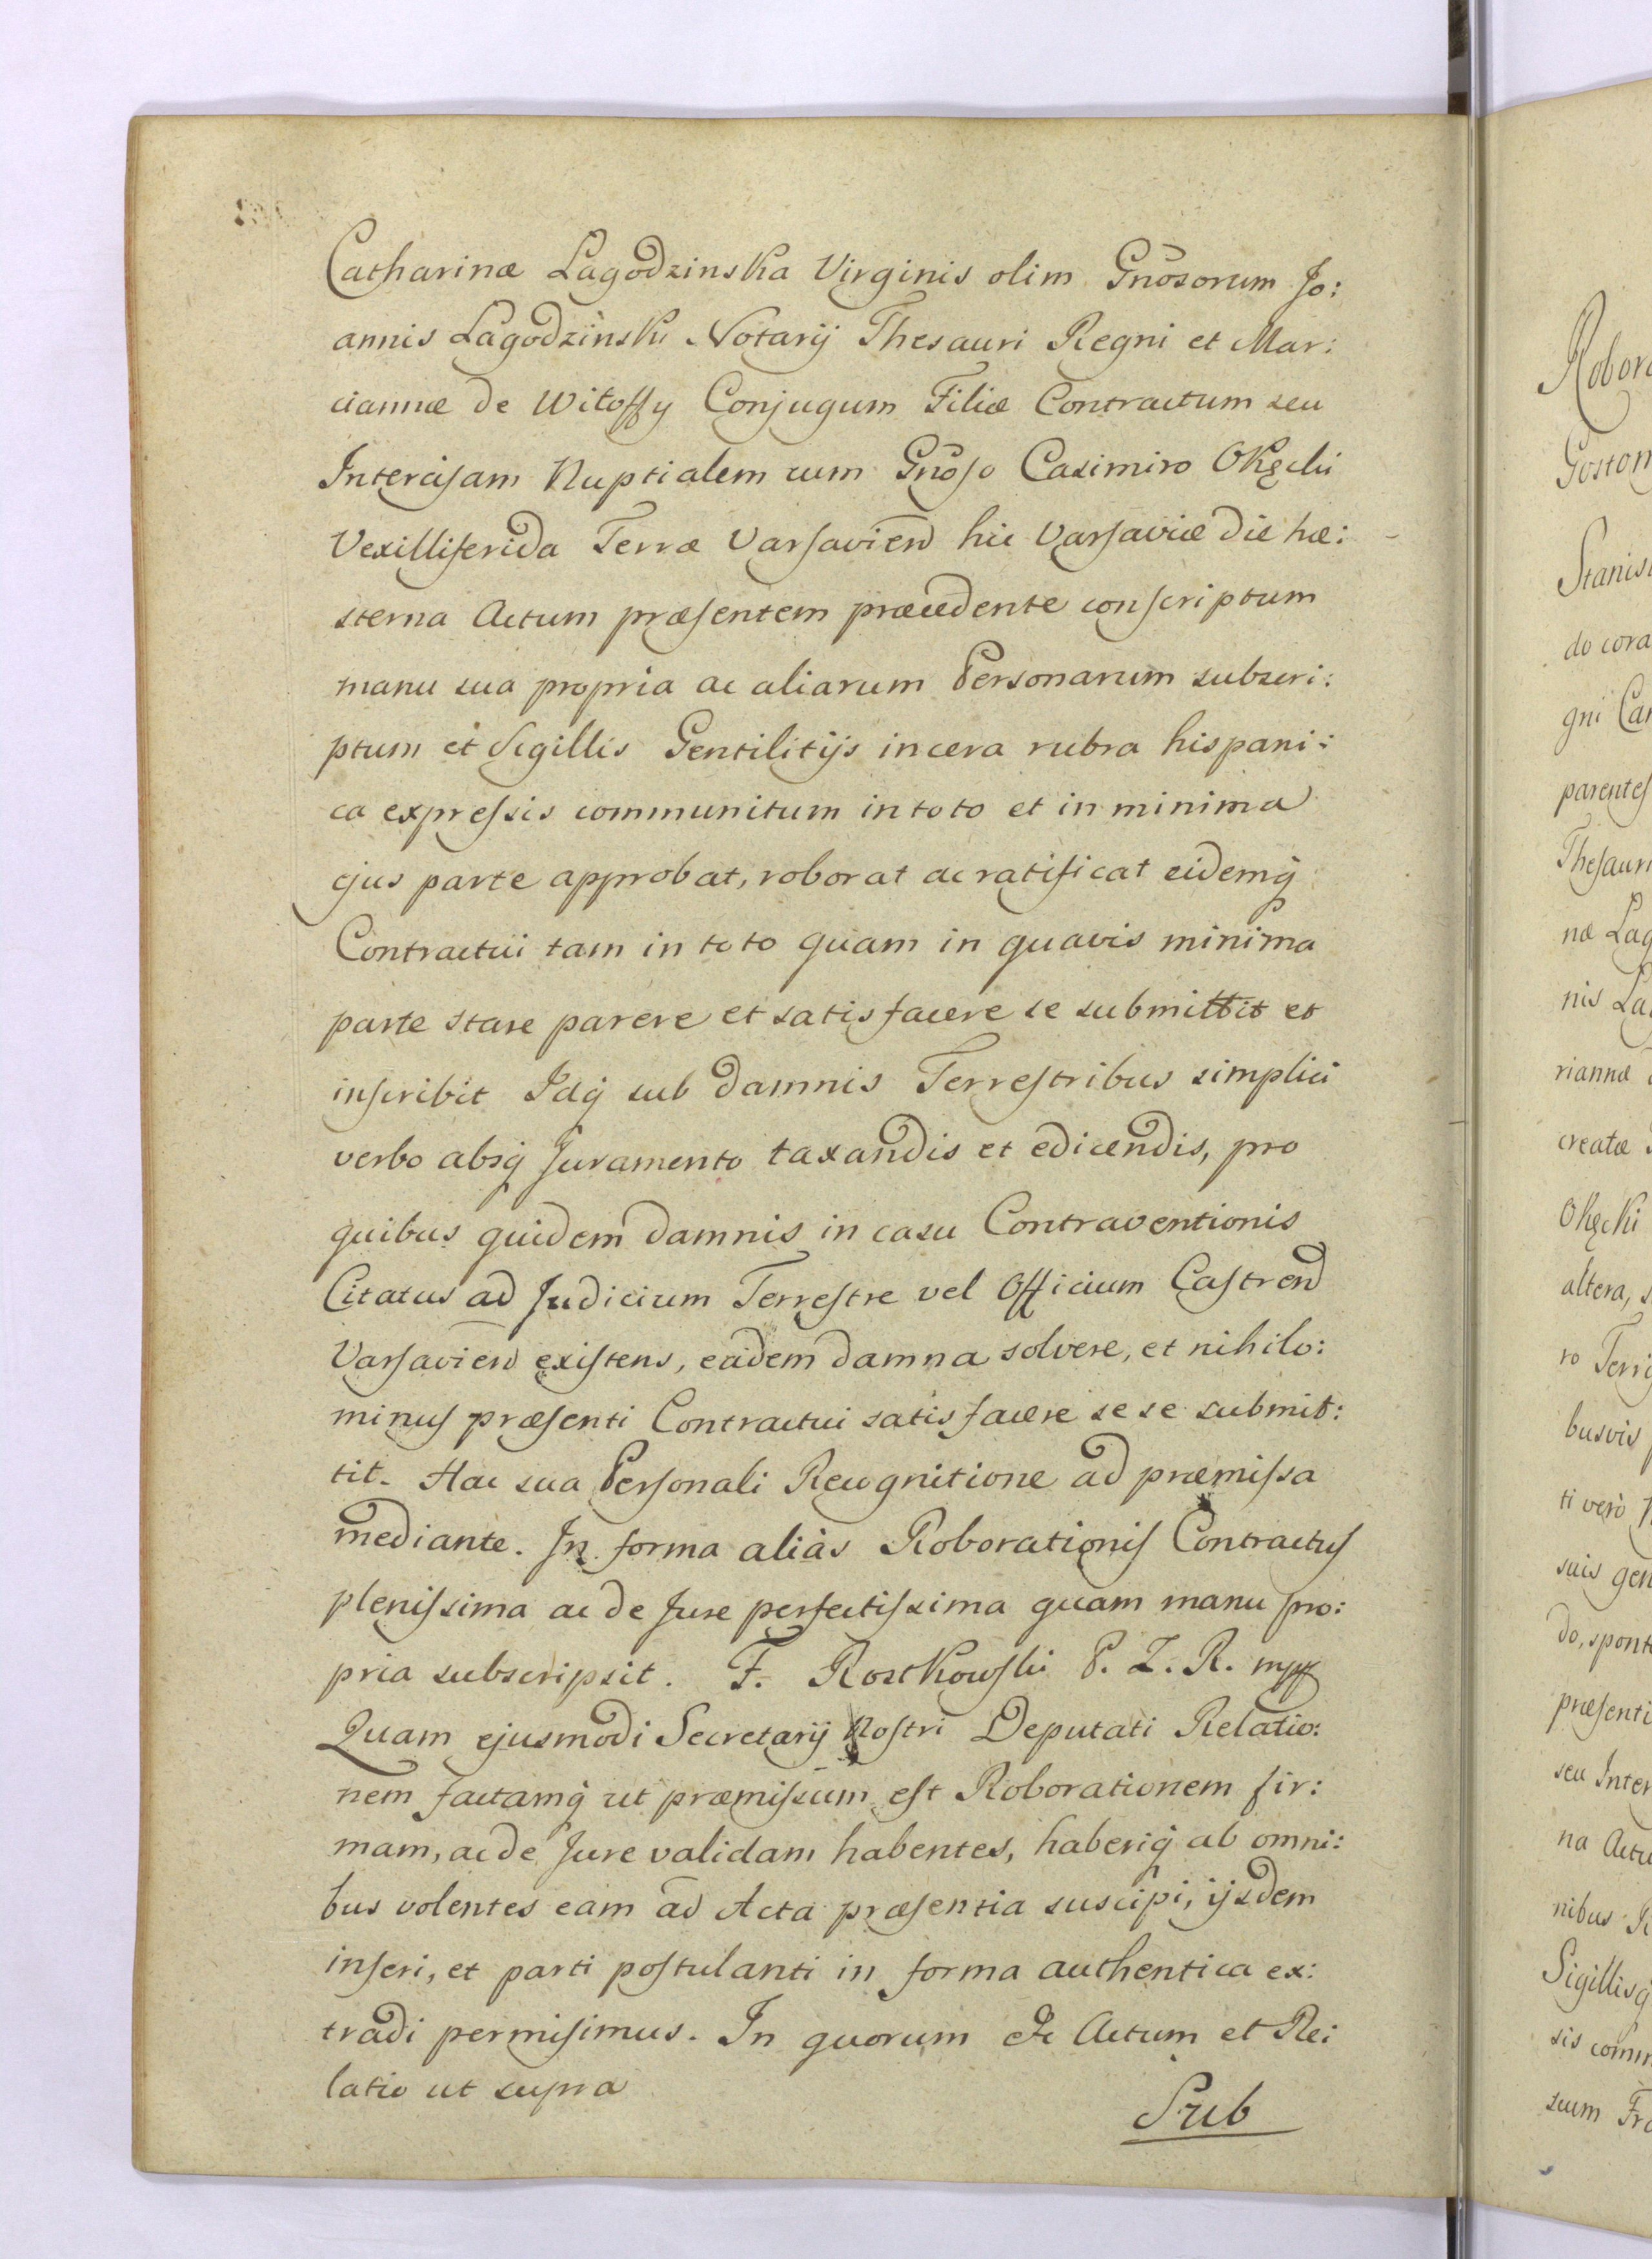 Catharinæ Lagodzinska Virginis olim Gnõsorum Jo:
annis Lagodzinski Notarij Thesauri Regni et Mar:
ciannæ de Witoffy Conjugum Filiæ Contractum seu
Intercisam Nuptialem cum Gnõso Casimiro Okęcki
Vexilliferida Terræ Varsavien hic Varsaviæ die hæ:
sterna Actum præsentem præcedente conscriptum
manu sua propria ac aliarum Personarum subscri:
ptum et Sigillis Gentilitijs in cera rubra hispani:
ca expressis communitum in toto et in minima
ejus parte approbat, roborat ac ratificat eidemq̃
Contractui tam in toto quam in quavis minima
parte stare parere et satisfacere se submittit et
inscribit Idq̃ sub damnis Terrestribus simplici
verbo absq̃ Juramento taxandis et edicendis, pro
quibus quidem damnis in casu Contraventionis
Citatus ad Judicium Terrestre vel Officium Castren
Varsavien existens, eadem damna solvere, et nihilo:
minus præsenti Contractui satisfacere se se submit:
tit. Hac sua Personali Recognitione ad præmissa
mediante. In forma aliàs Roborationis Contractus
plenissima ac de Jure perfectissima quam manu pro:
pria subscripsit. F. Rostkowski P. Z. R. mpp
Quam ejusmodi Secretarij Nostri Deputati Relatio:
nem factamq̃ ut præmissum est Roborationem fir:
mam, ac de Jure validam habentes, haberiq̃ ab omni:
bus volentes eam ad Acta præsentia suscipi, ijsdem
inseri, et parti postulanti in forma authentica ex:
tradi permisimus. In quorum &c Actum et Re:
latio ut supra
Sub
Robora
Goston
Stanis
do cora
gni Can
parentes
Thesauri
næ Lag
nis La
riannæ
creatæ
Okęcki
altera, s
ro Terrig
busvis
ti verò
suis gen
do, spont
præsenti
seu Inter
na Actu
nibus
Sigillisq̃
sis comm
suum Fra